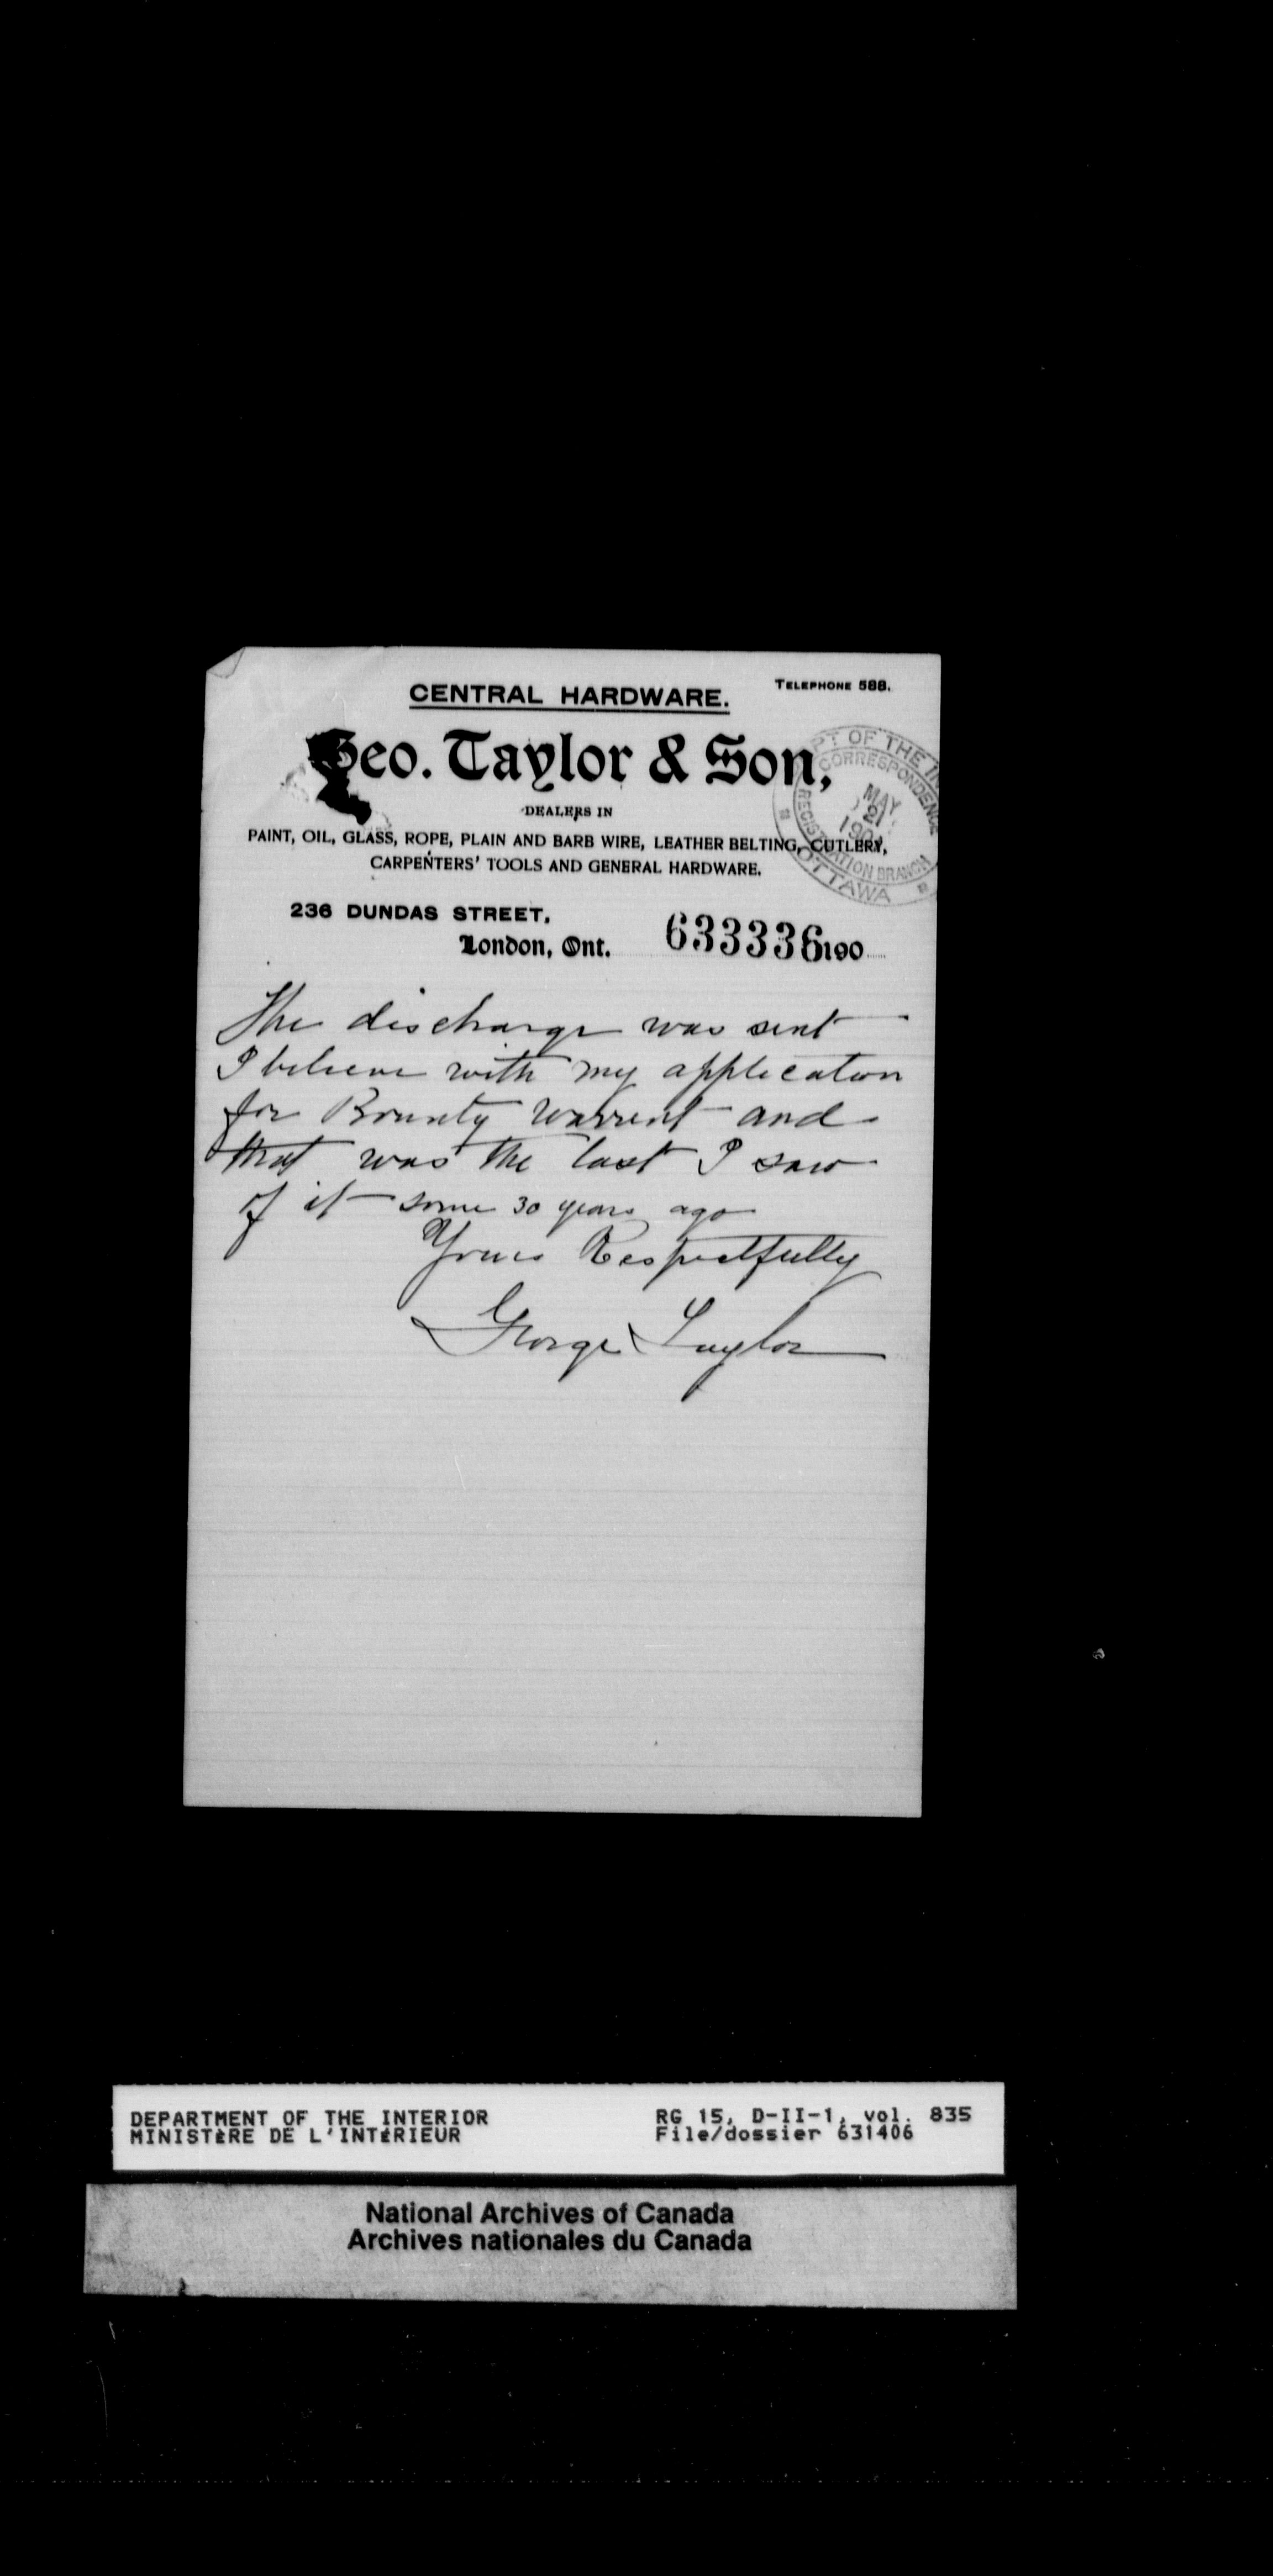 CENTRAL HARDWARE.
TELEPHONE 588.
Geo. Taylor & Son,
DEALERS IN
PAINT, OIL, GLASS, ROPE, PLAIN AND BARB WIRE, LEATHER BELTING, CUTLERY,
CARPENTERS' TOOLS AND GENERAL HARDWARE.
PT OF THE IN
CORRESPONDENCE
MAY
21
REGISTRATION BRANCH
OTTAWA
236 DUNDAS STREET,
London, Ont. 633336 190
The discharge was sent
I believe with my application
for Bounty Warrent and
that was the last I saw
of it some 30 years ago
Yours Respectfully
George Taylor
DEPARTMENT OF THE INTERIOR RG 15, D-II-1, vol. 835
MINISTÈRE DE L'INTÉRIEUR File/dossier 631406
National Archives of Canada
Archives nationales du Canada